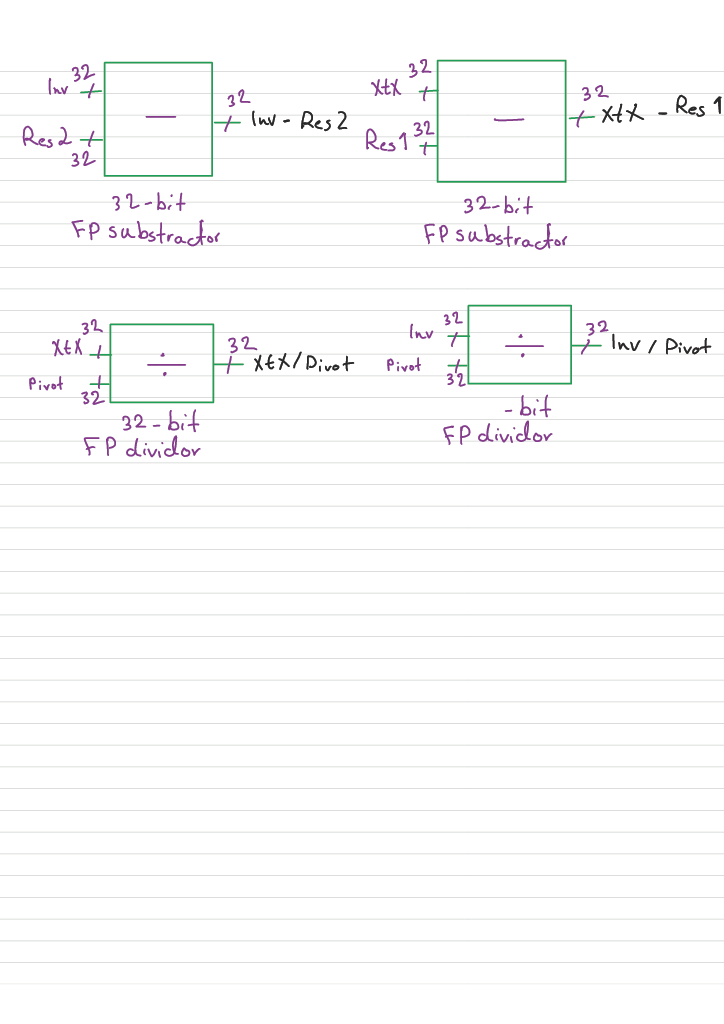 32
Inv
Res2
32
—
32
Inv - Res2
32-bit
FP substractor
32
XtX
Res1 32
—
32
XtX - Res 1
32-bit
FP substractor
32
XtX
Pivot
32
÷
32
XtX/Pivot
32-bit
FP dividor
32
Inv
Pivot
32
÷
32
Inv / Pivot
-bit
FP dividor